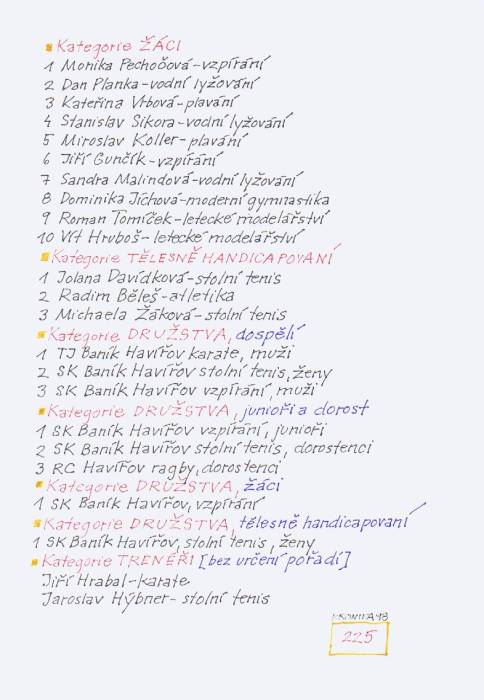 Kategorie ŽÁCI
1 Monika Pechočová-vzpírání
2 Dan Planka-vodní lyžování
3 Kateřina Vrbová-plavání
4 Stanislav Sikora-vodní lyžování
5 Miroslav Koller-plavání
6 Jiří Gunčík-vzpírání
7 Sandra Malindová-vodní lyžování
8 Dominika Jichová-moderní gymnastika
9 Roman Tomíček-letecké modelářství
10 Vít Hruboš-letecké modelářství
Kategorie TĚLESNĚ HANDICAPOVANÍ
1 Jolana Davídková-stolní tenis
2 Radim Běleš-atletika
3 Michaela Žáková-stolní tenis
Kategorie DRUŽSTVA, dospělí
1 TJ Baník Havířov karate, muži
2 SK Baník Havířov stolní tenis, ženy
3 SK Baník Havířov vzpírání, muži
Kategorie DRUŽSTVA, junioři a dorost
1 SK Baník Havířov vzpírání, junioři
2 SK Baník Havířov stolní tenis, dorostenci
3 RC Havířov ragby, dorostenci
Kategorie DRUŽSTVA, žáci
1 SK Baník Havířov, vzpírání
Kategorie DRUŽSTVA, tělesně handicapovaní
1 SK Baník Havířov, stolní tenis, ženy
Kategorie TRENÉŘI [bez určení pořadí]
Jiří Hrabal-karate
Jaroslav Hýbner-stolní tenis
KRONIKA 98
225